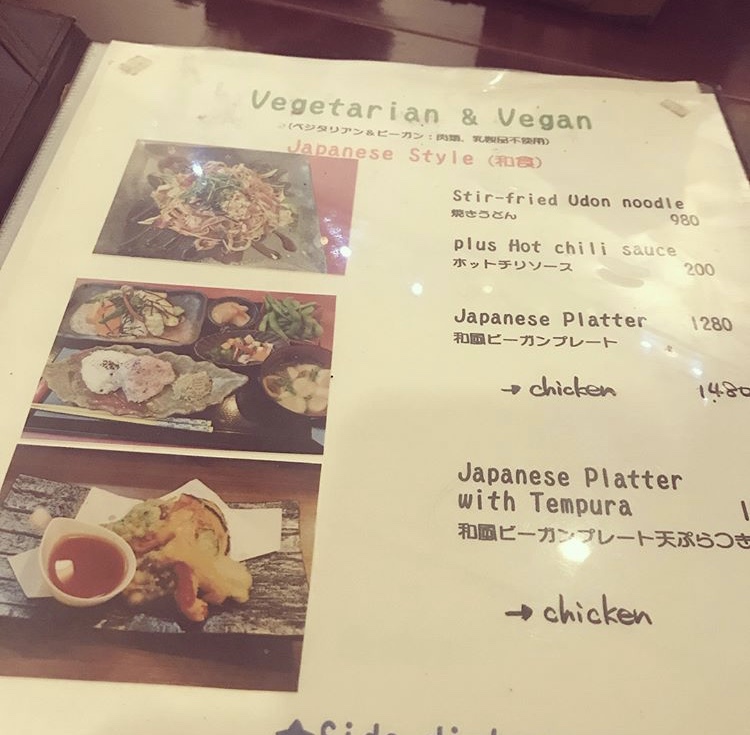 Vegetarian & Vegan
(ベジタリアン＆ビーガン：肉類、乳製品不使用)
Japanese Style (和食)
Stir-fried Udon noodle
焼きうどん 980
plus Hot chili sauce
ホットチリソース 200
Japanese Platter 1280
和風ビーガンプレート
→ chicken 1480
Japanese Platter
with Tempura
和風ビーガンプレート天ぷらつき
→ chicken